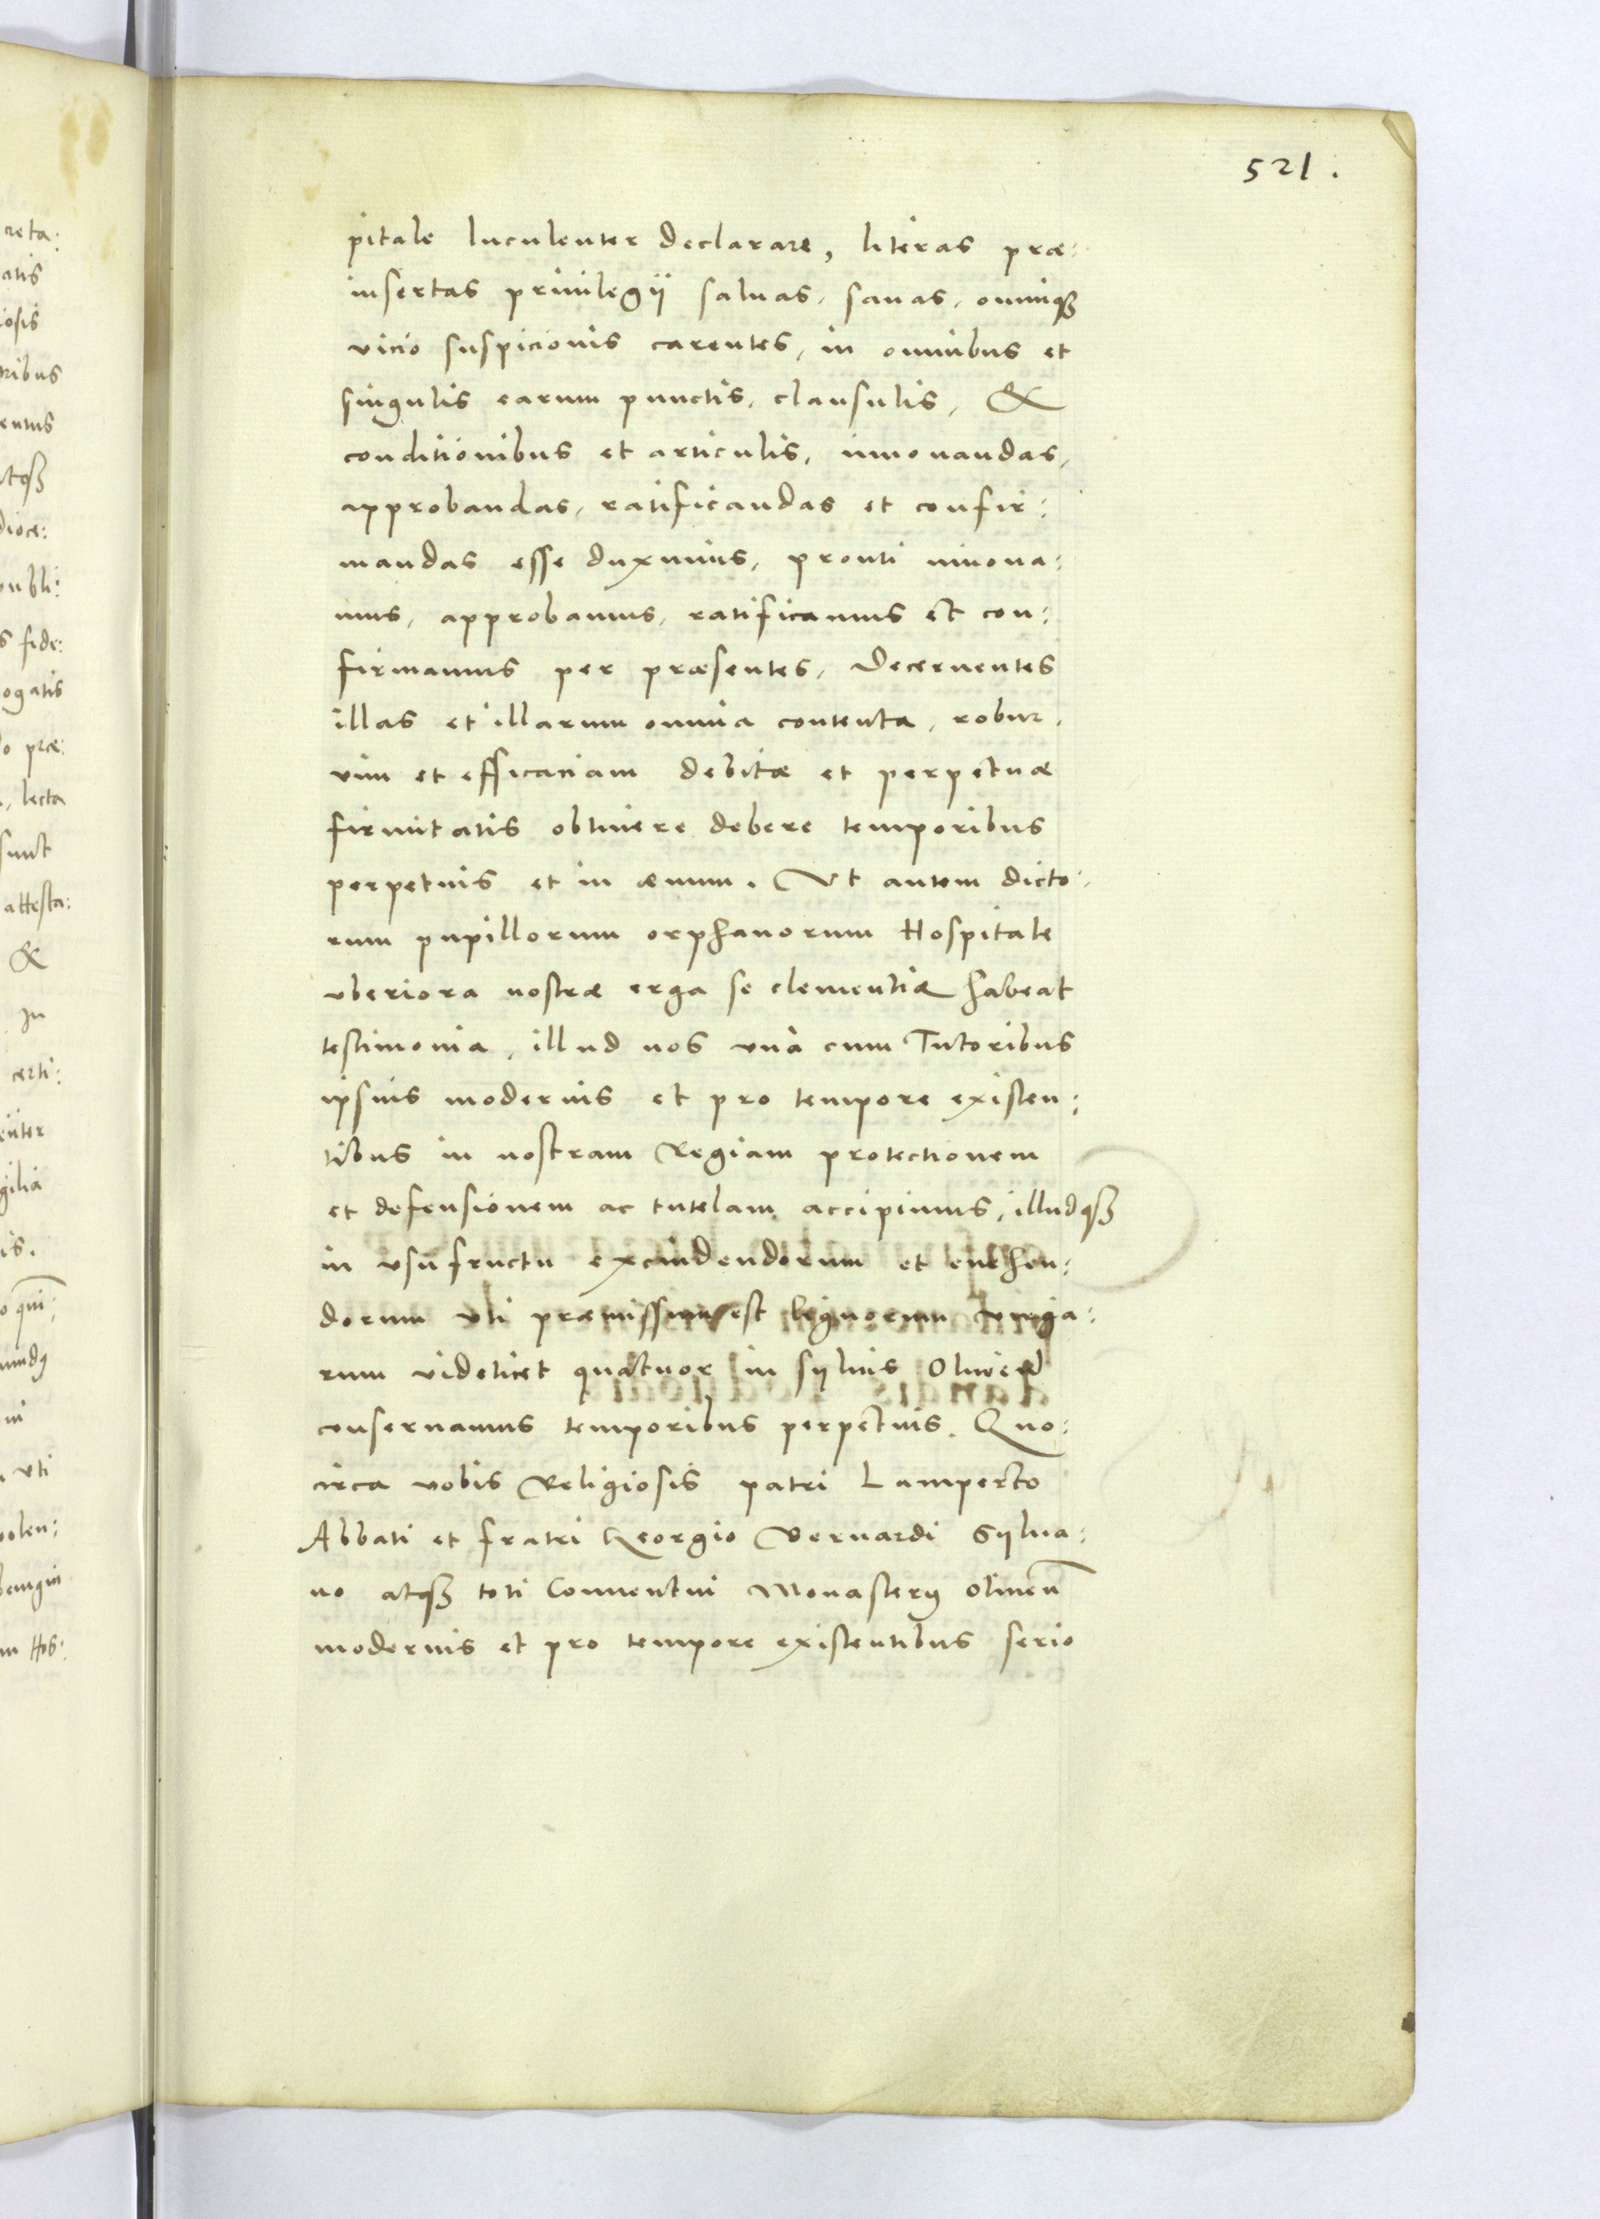 521.
pitale luculenter declarare, literas præ:
insertas priuilegÿ saluas, sanas, omniqꝫ
vicio suspicionis carentes, in omnibus et
singulis earum punctis, clausulis, &
conditionibus et articulis, innouandas,
approbandas, ratificandas et confir:
mandas esse duximus, prouti innoua:
mus, approbamus, ratificamus et con:
firmamus per præsentes, Decernentes
illas et illarum omnia contenta, robur,
vim et efficaciam debitæ et perpetuæ
firmitatis obtinere debere temporibus
perpetuis et in æuum. Vt autem dicto:
rum pupillorum orphanorum Hospitale
vberiora nostræ erga se clementiæ habeat
testimonia, illud nos vnà cum Tutoribus
ipsius modernis et pro tempore existen:
tibus in nostram Regiam protectionem
et defensionem ac tutelam accipimus, illudqꝫ
in vsufructu excindendorum et euehen:
dorum vti præmissum est lignorum virga:
rum videlicet quatuor in syluis
conseruamus temporibus perpetuis. Quo:
circa vobis Religiosis patri Lamperto
Abbati et fratri Georgio Bernardi Sylua:
no atqꝫ toti Conuentui Monasterÿ Oliueñ
modernis et pro tempore existentibus serio
reta:
atis
iosis
ribus
entus
tqꝫ
dioce:
publi:
s fide:
ogatis
o præ:
, lecta
sunt
attesta:
&
In
certi:
gilia
is.
vti
uolen:
benigni
m Hos: